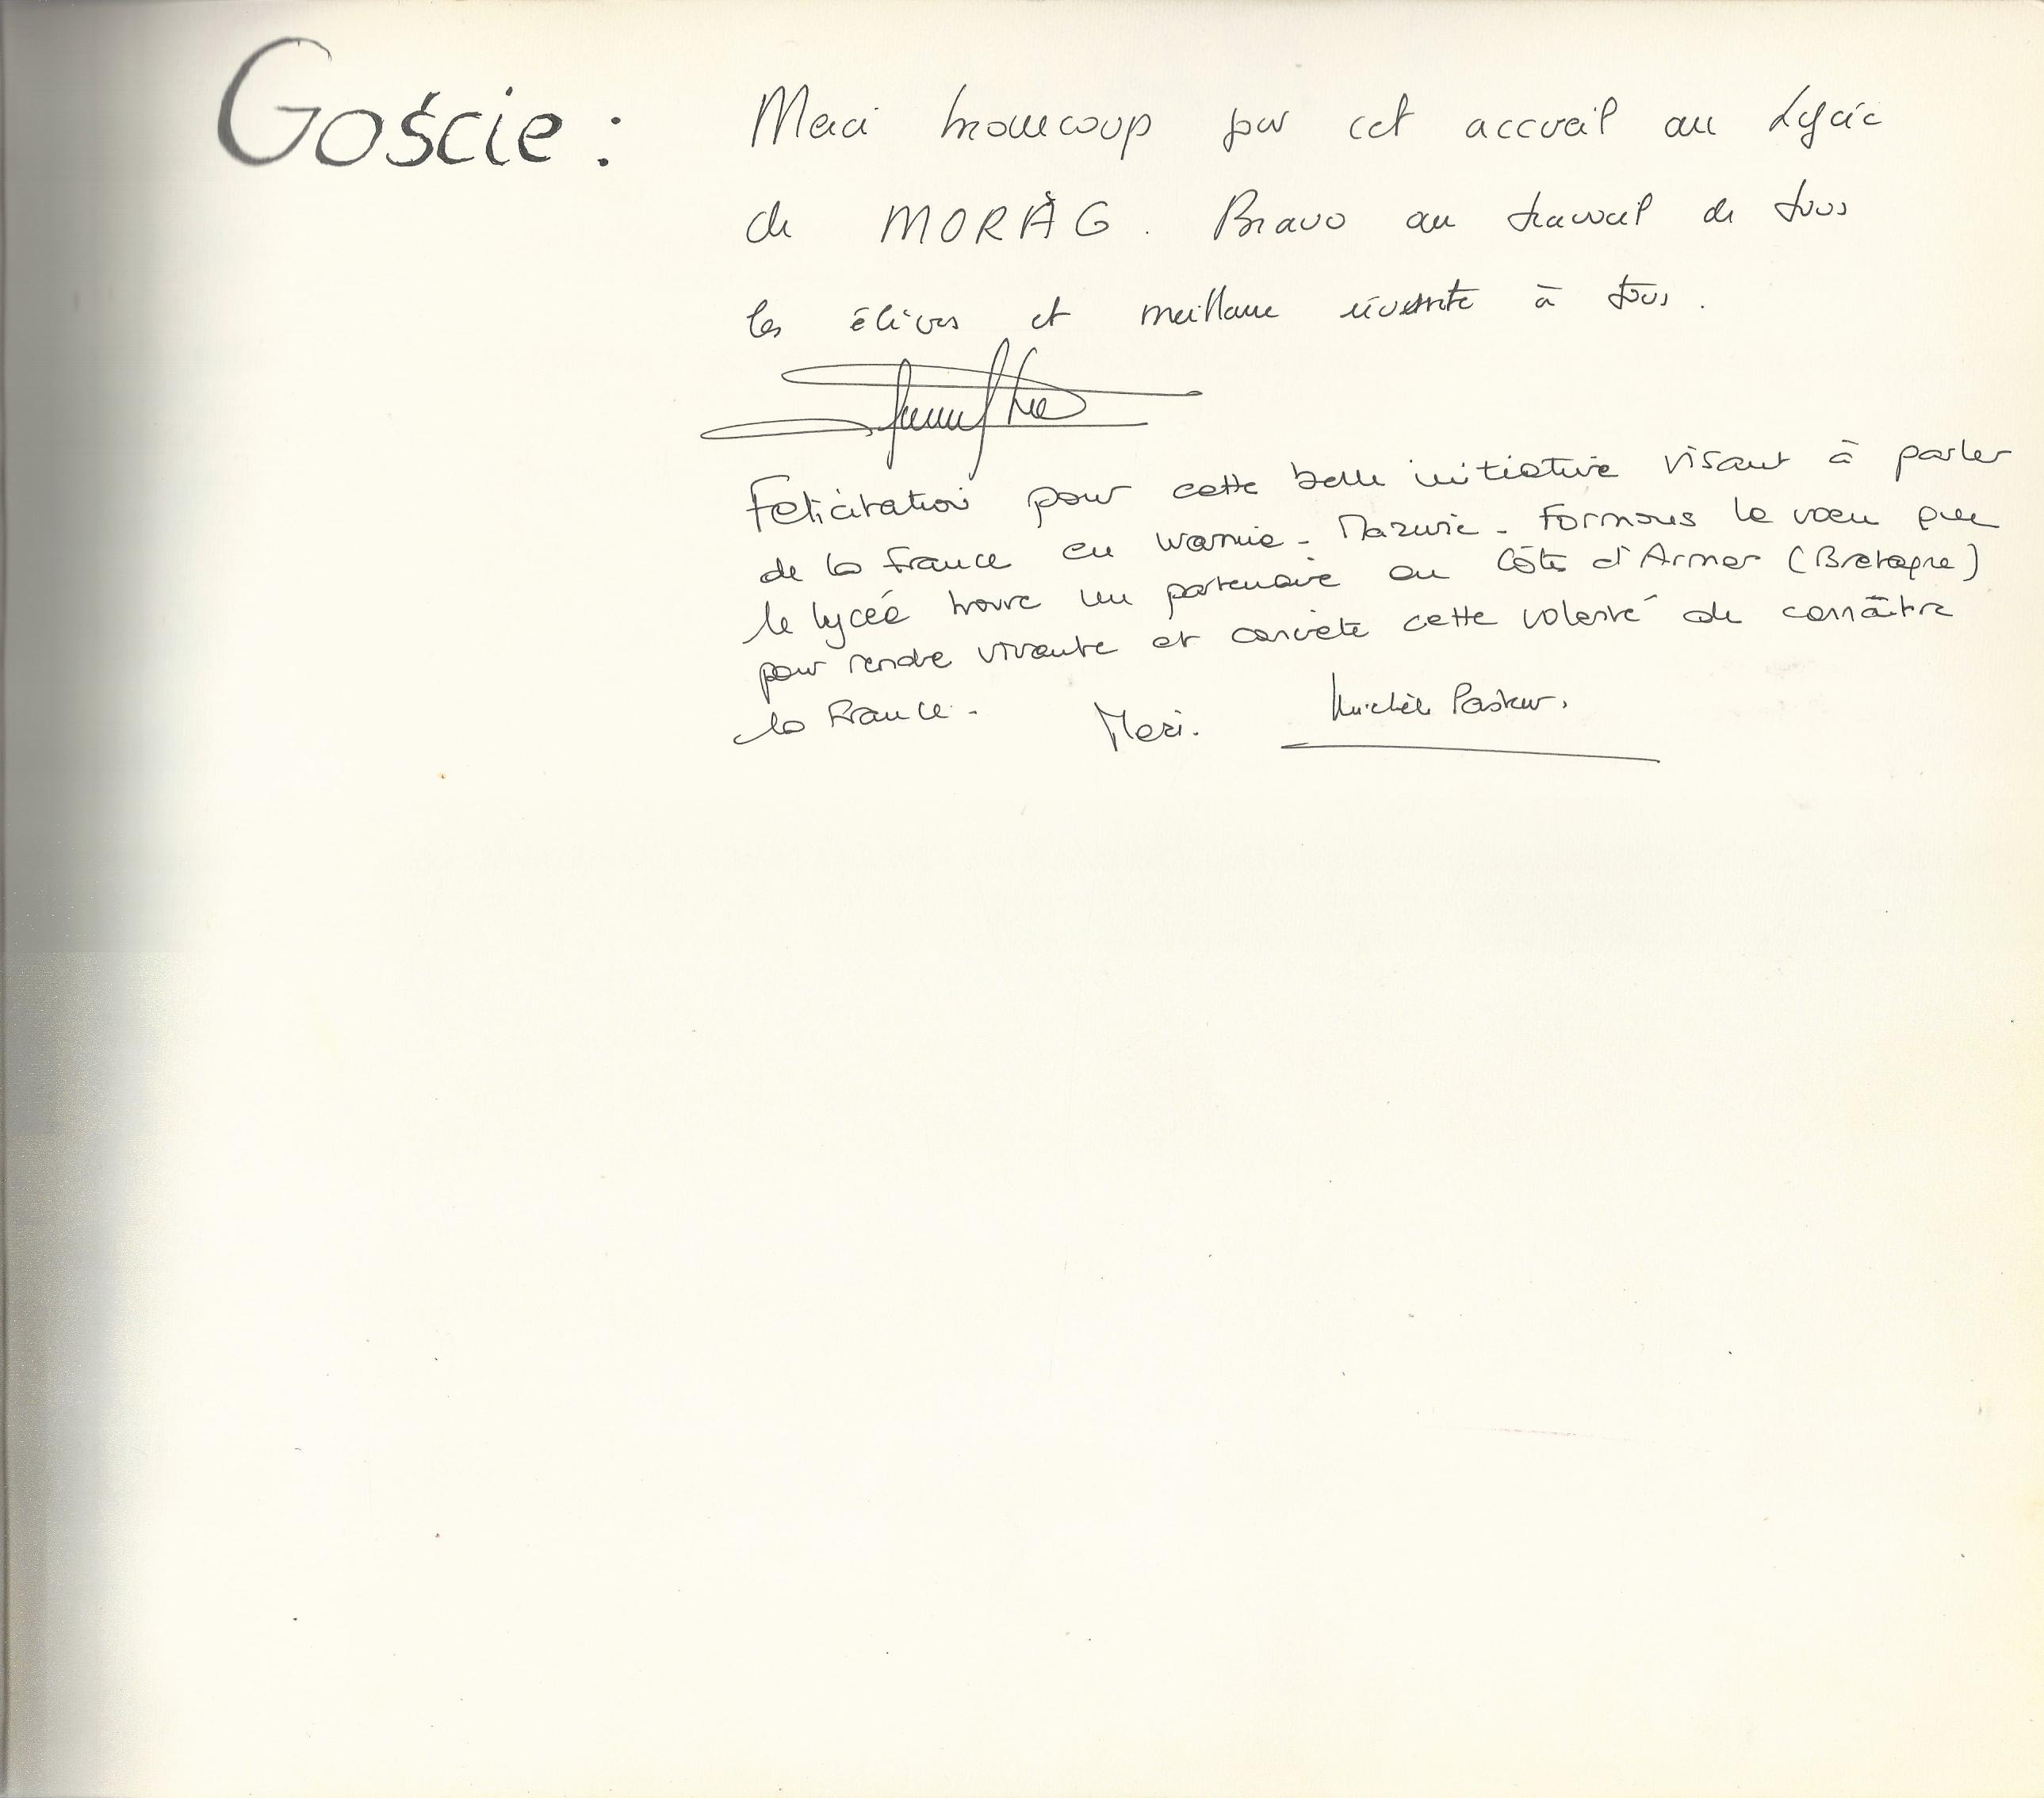 Goście :
Merci beaucoup par cet accueil au Lycée
de MORĄG. Bravo au travail de tous
les élèves et meilleure réussite à tous.
Félicitation pour cette belle initiative visant à parler
de la France en Warmie - Mazurie - Formons le vœu que
le lycée trouve un partenaire en Côte d'Armor (Bretagne)
pour rendre vivante et concrète cette volonté de connaître
la France. Merci. Michèle Pasteur.